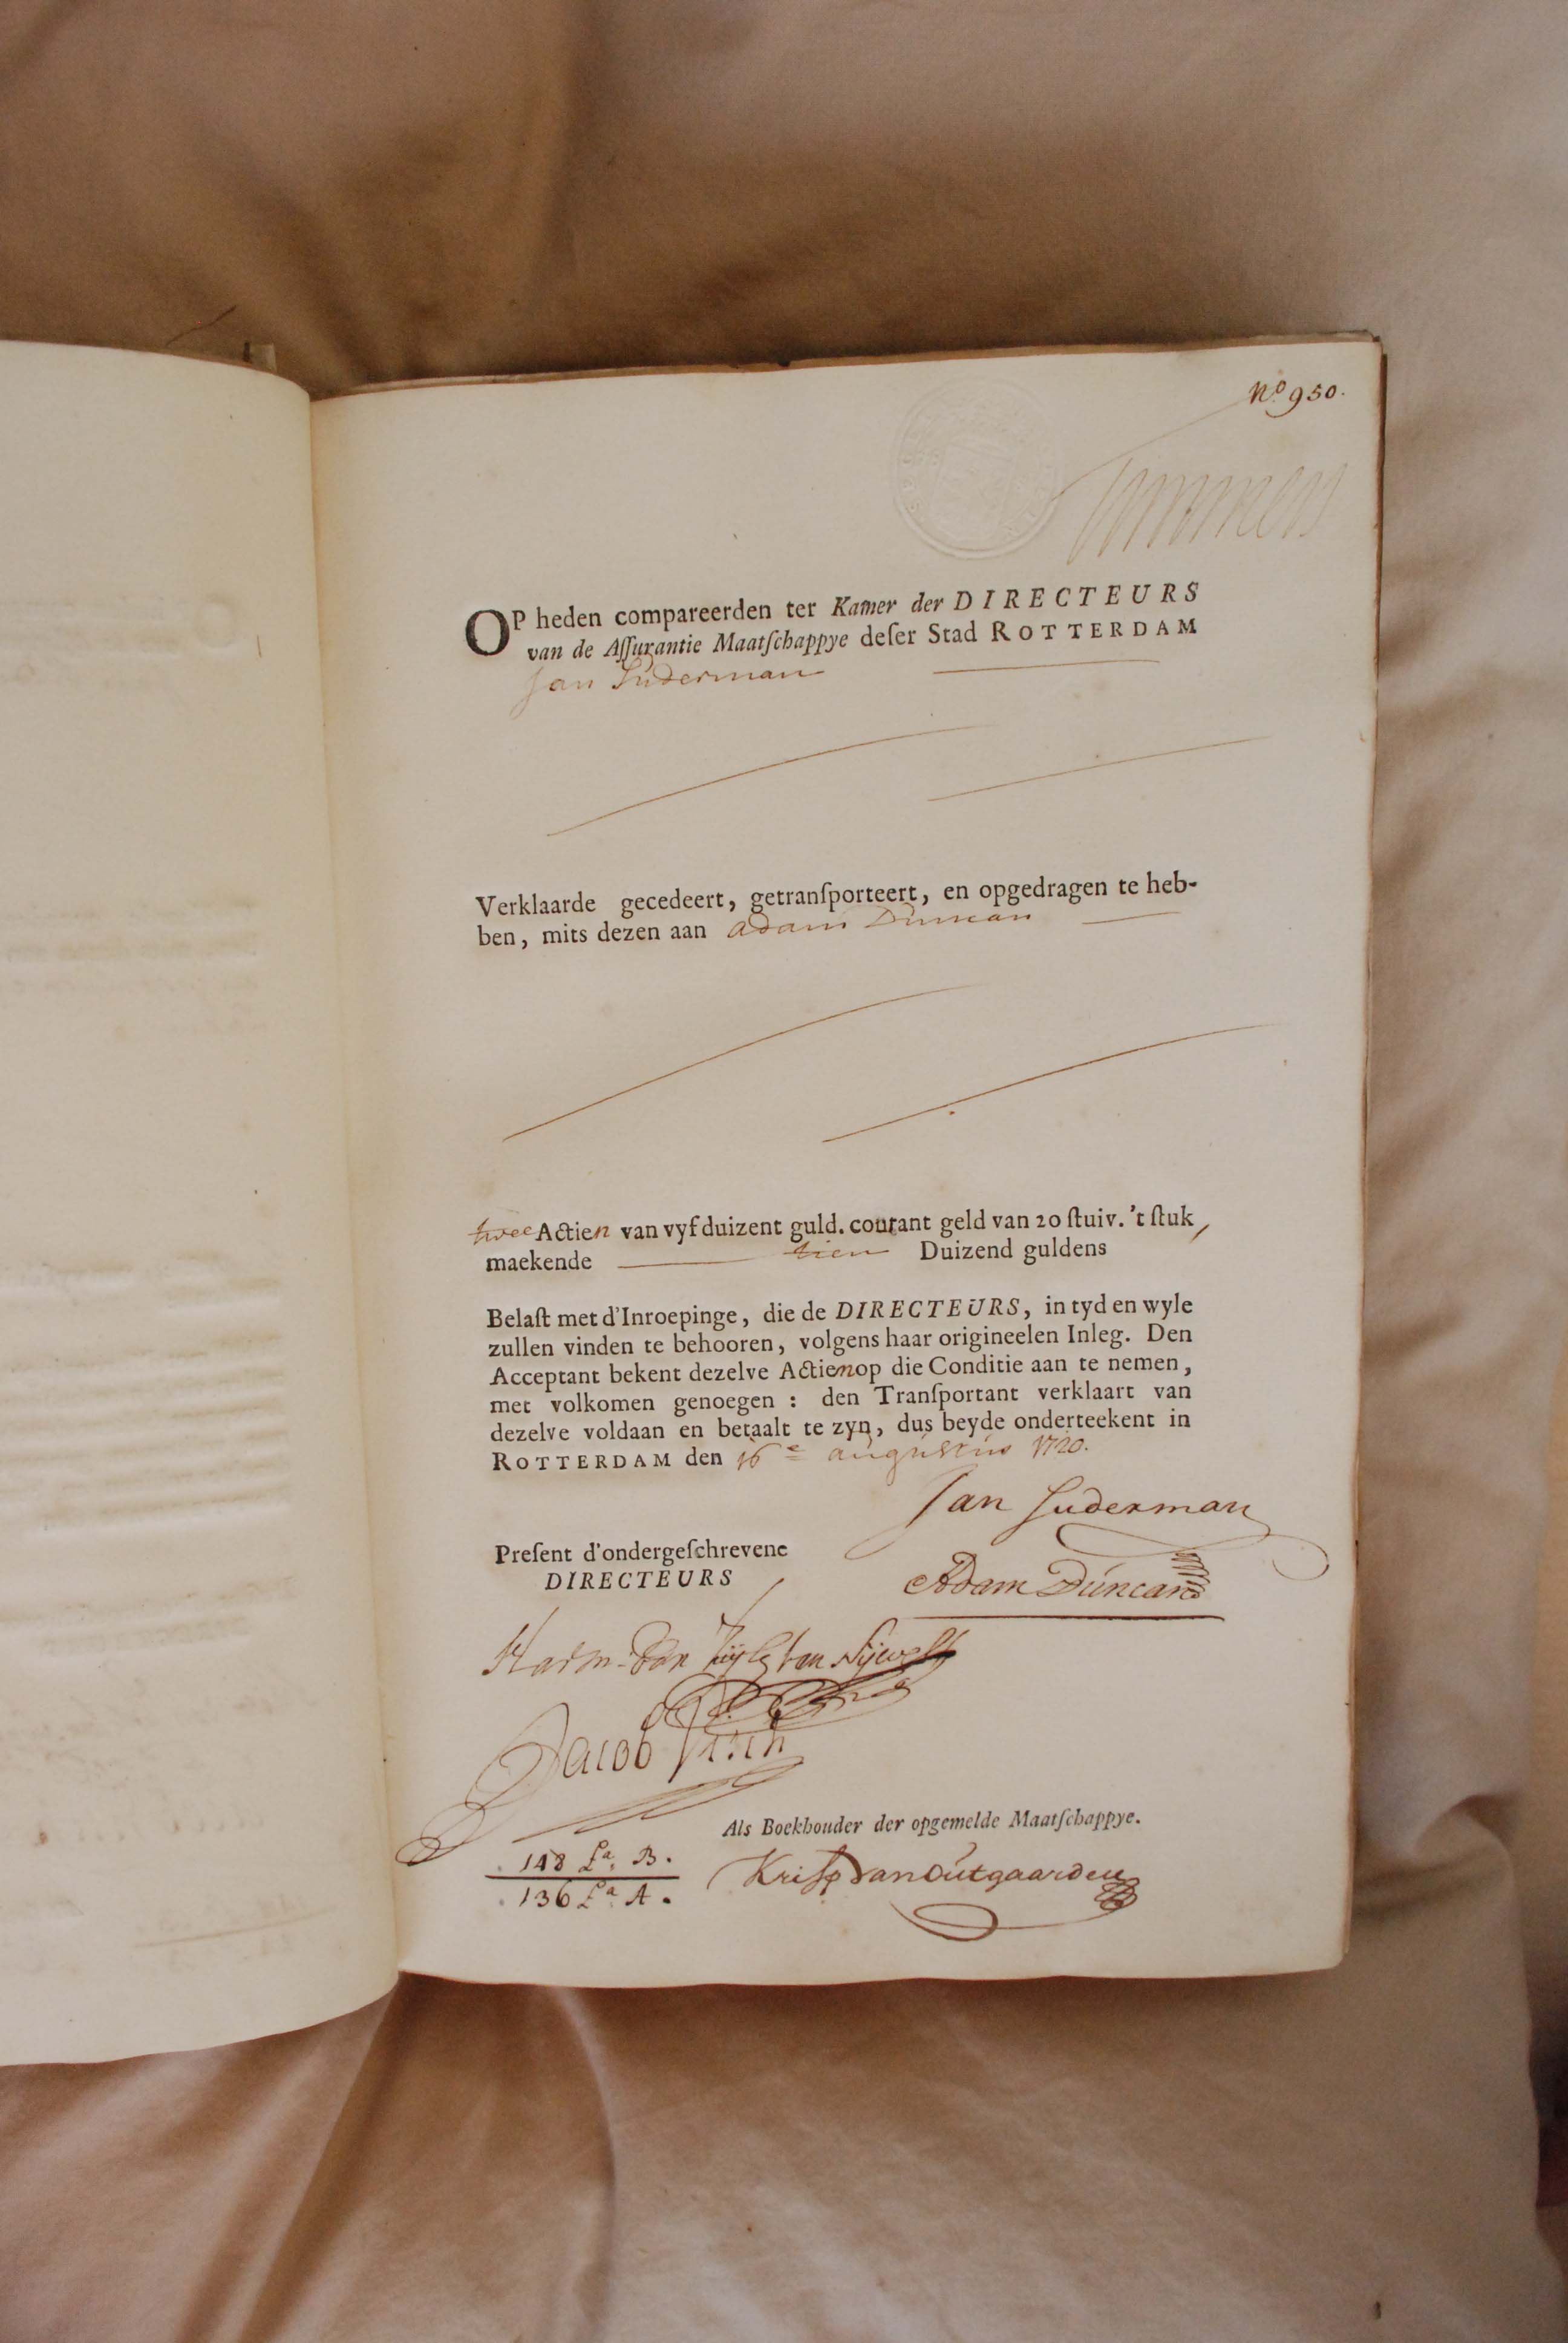 No 950.
OP heden compareerden ter Kamer der DIRECTEURS
van de Aſſurantie Maatſchappye deſer Stad ROTTERDAM
Jan Suderman
Verklaarde gecedeert, getranſporteert, en opgedragen te heb-
ben, mits dezen aan Adam Duncan
twee Actien van vyf duizent guld. courant geld van 20 ſtuiv. 't ſtuk,
maekende tien Duizend guldens
Belaſt met d'Inroepinge, die de DIRECTEURS, in tyd en wyle
zullen vinden te behooren, volgens haar origineelen Inleg. Den
Acceptant bekent dezelve Actien op die Conditie aan te nemen,
met volkomen genoegen : den Tranſportant verklaart van
dezelve voldaan en betaalt te zyn, dus beyde onderteekent in
ROTTERDAM den 16e augustus 1720.
Jan Suderman
Preſent d'ondergeſchrevene
DIRECTEURS
Adam Duncan
Harm. van Zijle van Nijevelt
Jacob Visch
Als Boekhouder der opgemelde Maatſchappye.
148 La. B.
Krisp van Outgaarden
136 La. A.